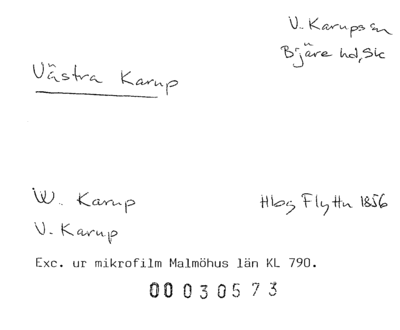 V. Karups sn
Bjäre hd, Sk
Västra Karup
W. Karup
Hbg Flyttn 1856
V. Karup
Exc. ur mikrofilm Malmöhus län KL 790.
00030573